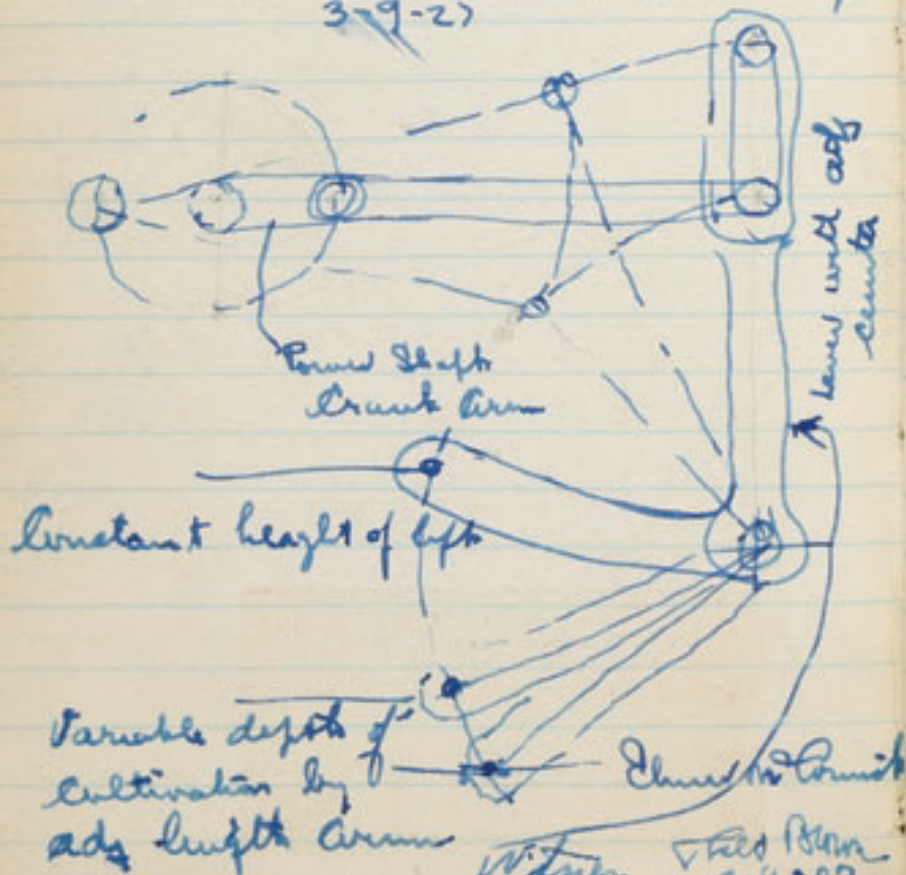 3-9-27
Lever with adj
center
Power Shaft
Crank Arm
Constant height of lift
Variable depth of
cultivation by
adj length arm
Elmer McCormick
Witness
Theo Brown